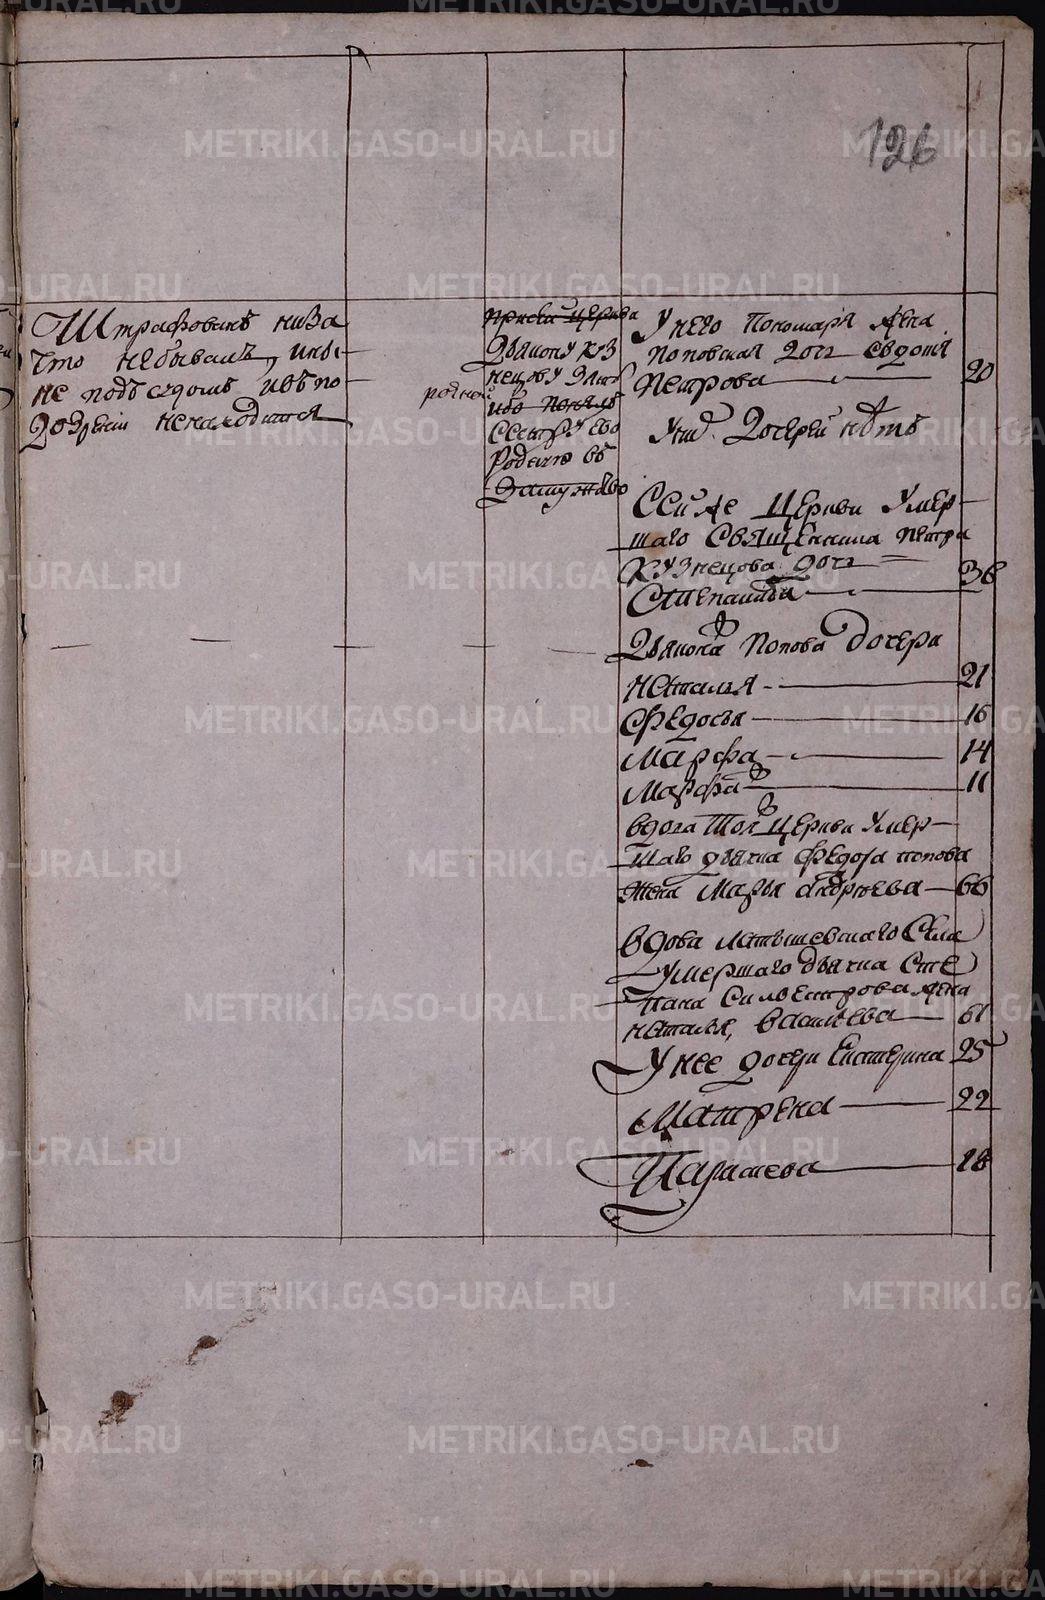 126
Штрафованъ низа
что небывалъ, ины-
не подъ судомъ ивъ по-
дозреніи ненаходится
родной
Дьякону Куз
нецову зять
Сестру ево
въ
Унего Пономаря жена
Поповская дочь Евдотя
Петрова 20
Уних дочерей нѣтъ
Сей же Церкви Умер-
шаго Священника Петра
Кузнецова дочь
Степанида 36
Дьякона Попова дочери
Наталья 21
Федосья 16
Марфа 14
Марфа 11
вдова Той Церкви Умер-
шаго дьячка Федора попова
жена Марья Андрѣева 66
вдова Села
умершаго дьячка Сте
пана Сильвестрова жена
Наталья, Васильева 61
У нее дочери Екатерина 25
Матрена 22
18
METRIKI.GASO-URAL.RU